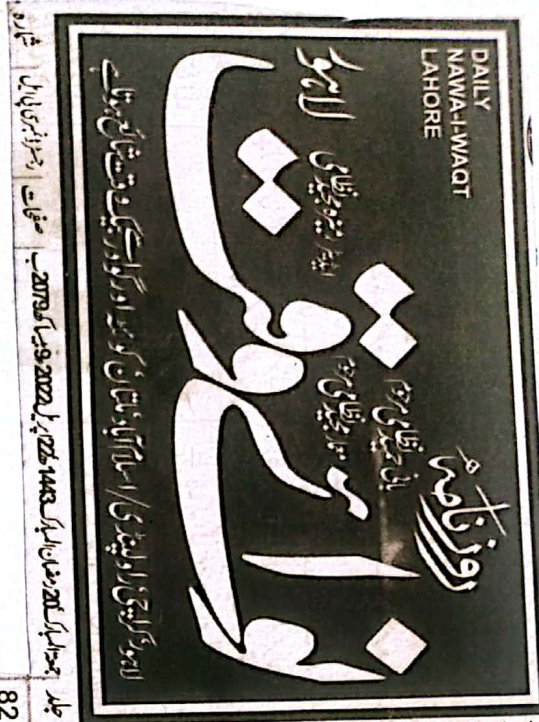 DAILY
NAWA-I-WAQT
LAHORE
روزنامہ
نوائے وقت
لاہور
بانی حمید نظامی مرحوم
معمار مجید نظامی مرحوم
ایڈیٹر رمیزہ مجید نظامی
لاہور، کراچی، راولپنڈی/اسلام آباد، ملتان، کوئٹہ اور گوادر سے بیک وقت شائع ہوتا ہے
جلد 82 جمعۃ المبارک 20 رمضان المبارک 1443ھ 22 اپریل 2022ء 9 بیساکھ 2079ب صفحات رجسٹرڈ نمبر سی پی ایل شمارہ